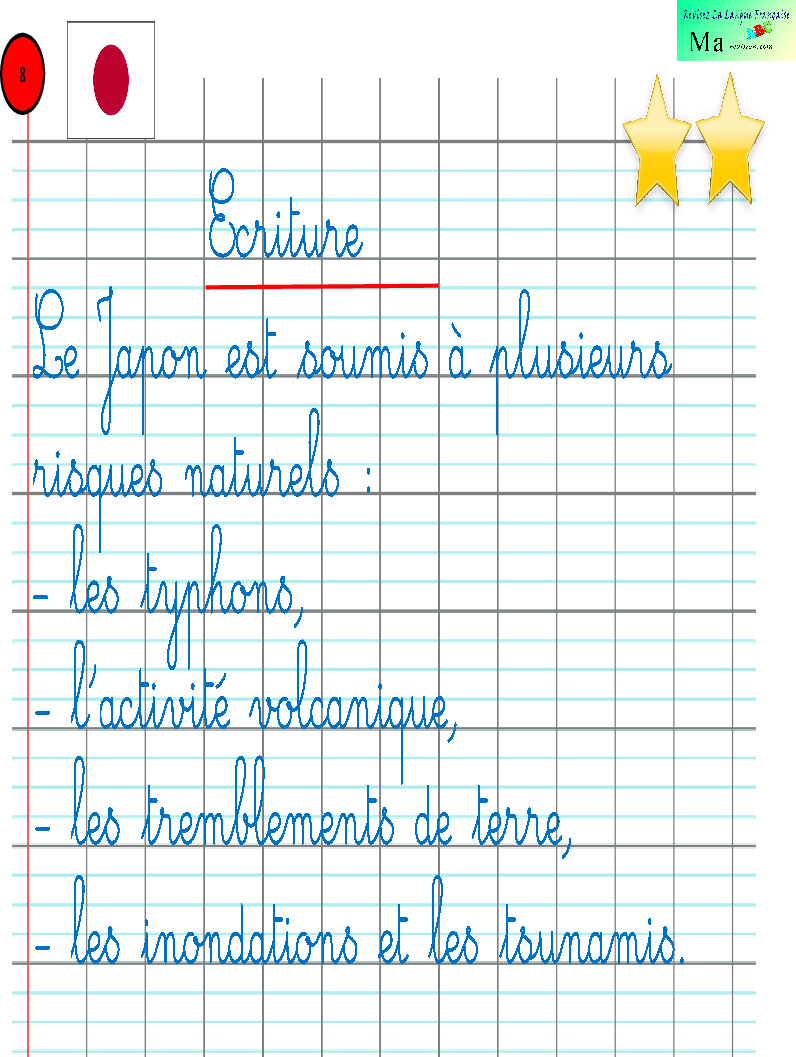 Revisez La Langue Française
Ma
revision.com
8
Ecriture
Le Japon est soumis à plusieurs
risques naturels :
- les typhons,
- l'activité volcanique,
- les tremblements de terre,
- les inondations et les tsunamis.